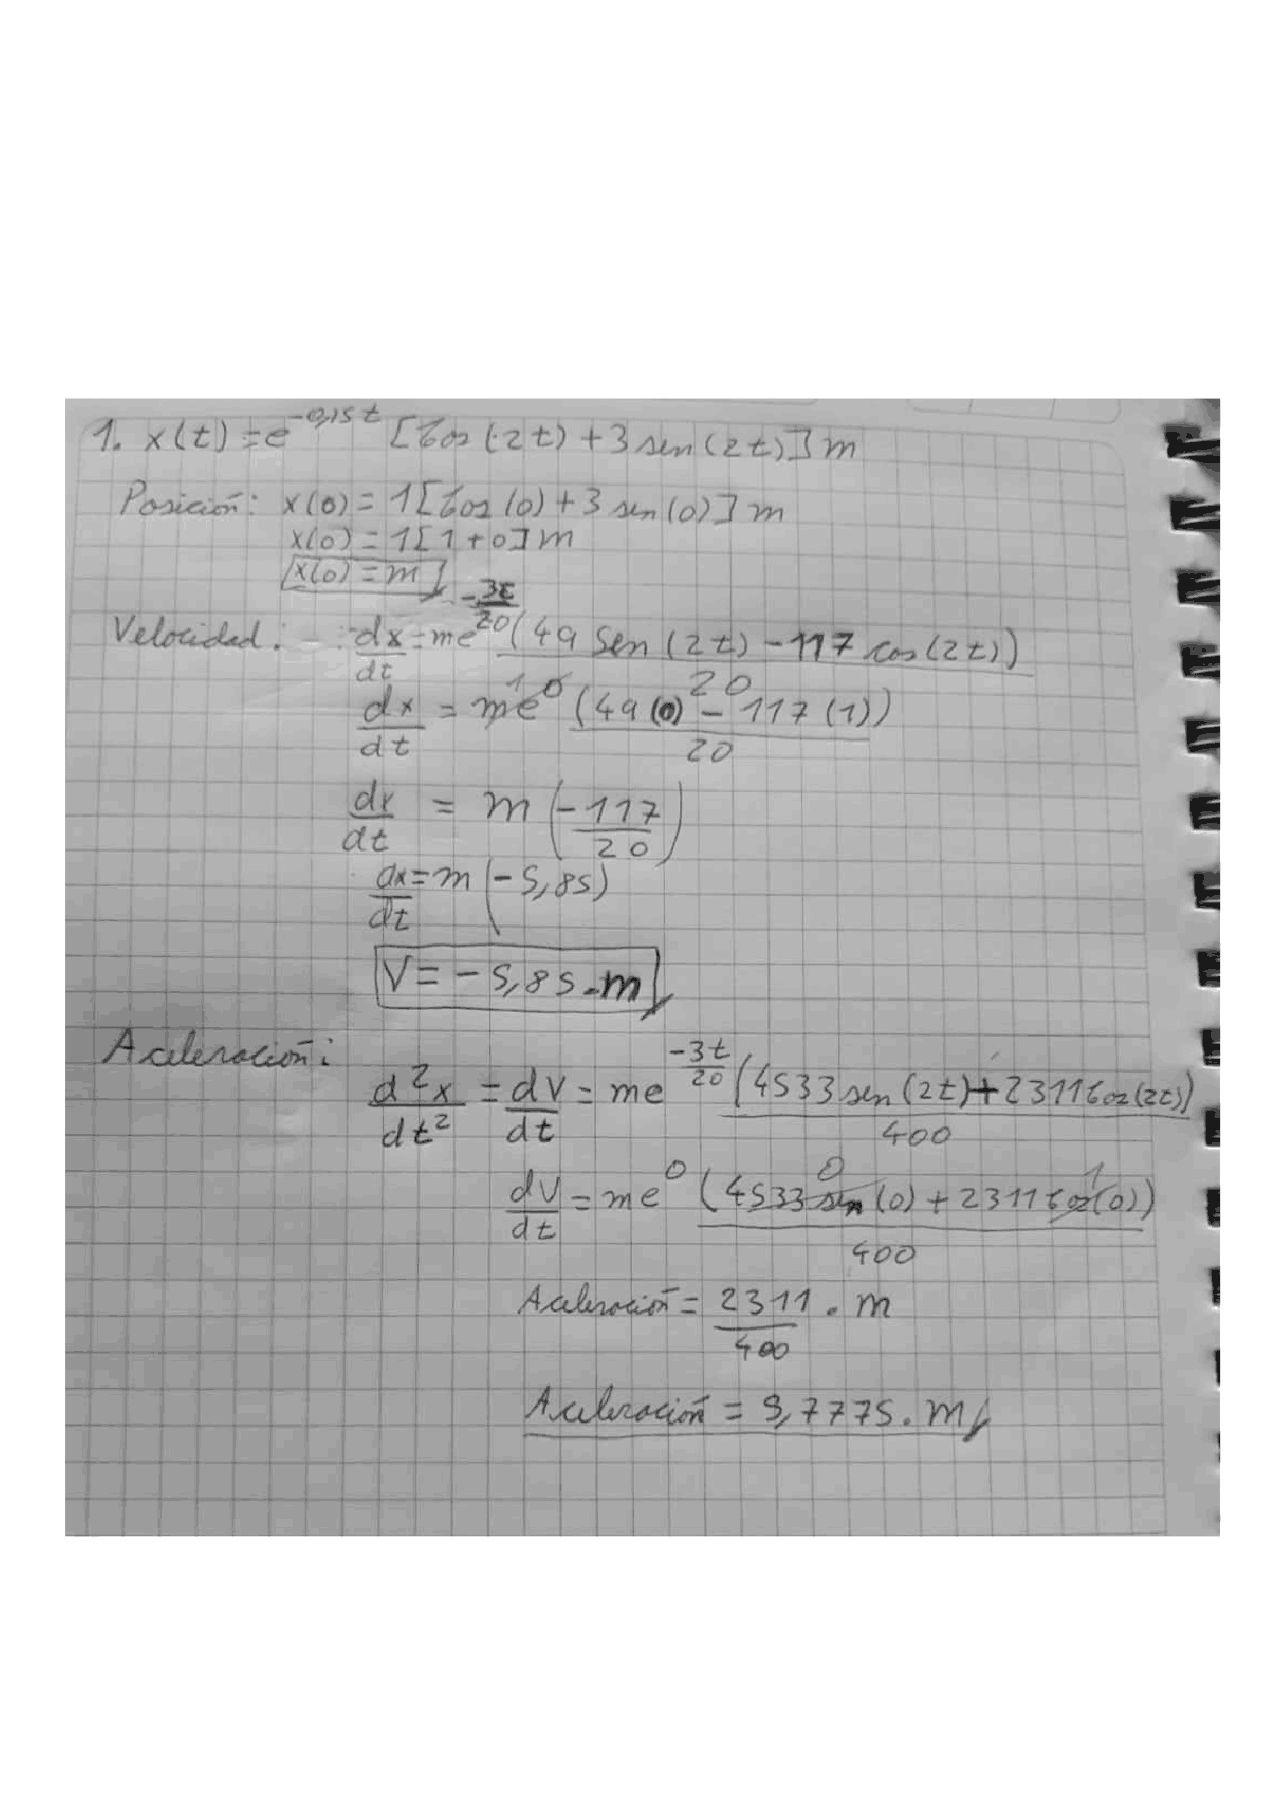 1. x(t) = e^-0,15t [Cos(-2t) + 3 sen(2t)] m
Posición: x(0) = 1[Cos(0) + 3 sen(0)] m
x(0) = 1[1 + 0] m
x(0) = m
Velocidad: dx/dt = me^-3t/20 (49 Sen(2t) - 117 cos(2t))/20
dx/dt = me^0 (49(0) - 117(1))/20 1
dx/dt = m (-117/20)
dx/dt = m (-5,85)
V = -5,85.m
Aceleración:
d²x/dt² = dV/dt = me^-3t/20 (4533 sen(2t) + 2311 Cos(2t))/400
dV/dt = me^0 (4533 sen(0) + 2311 Cos(0))/400 0 1
Aceleración = 2311/400 . m
Aceleración = 9,7775.m